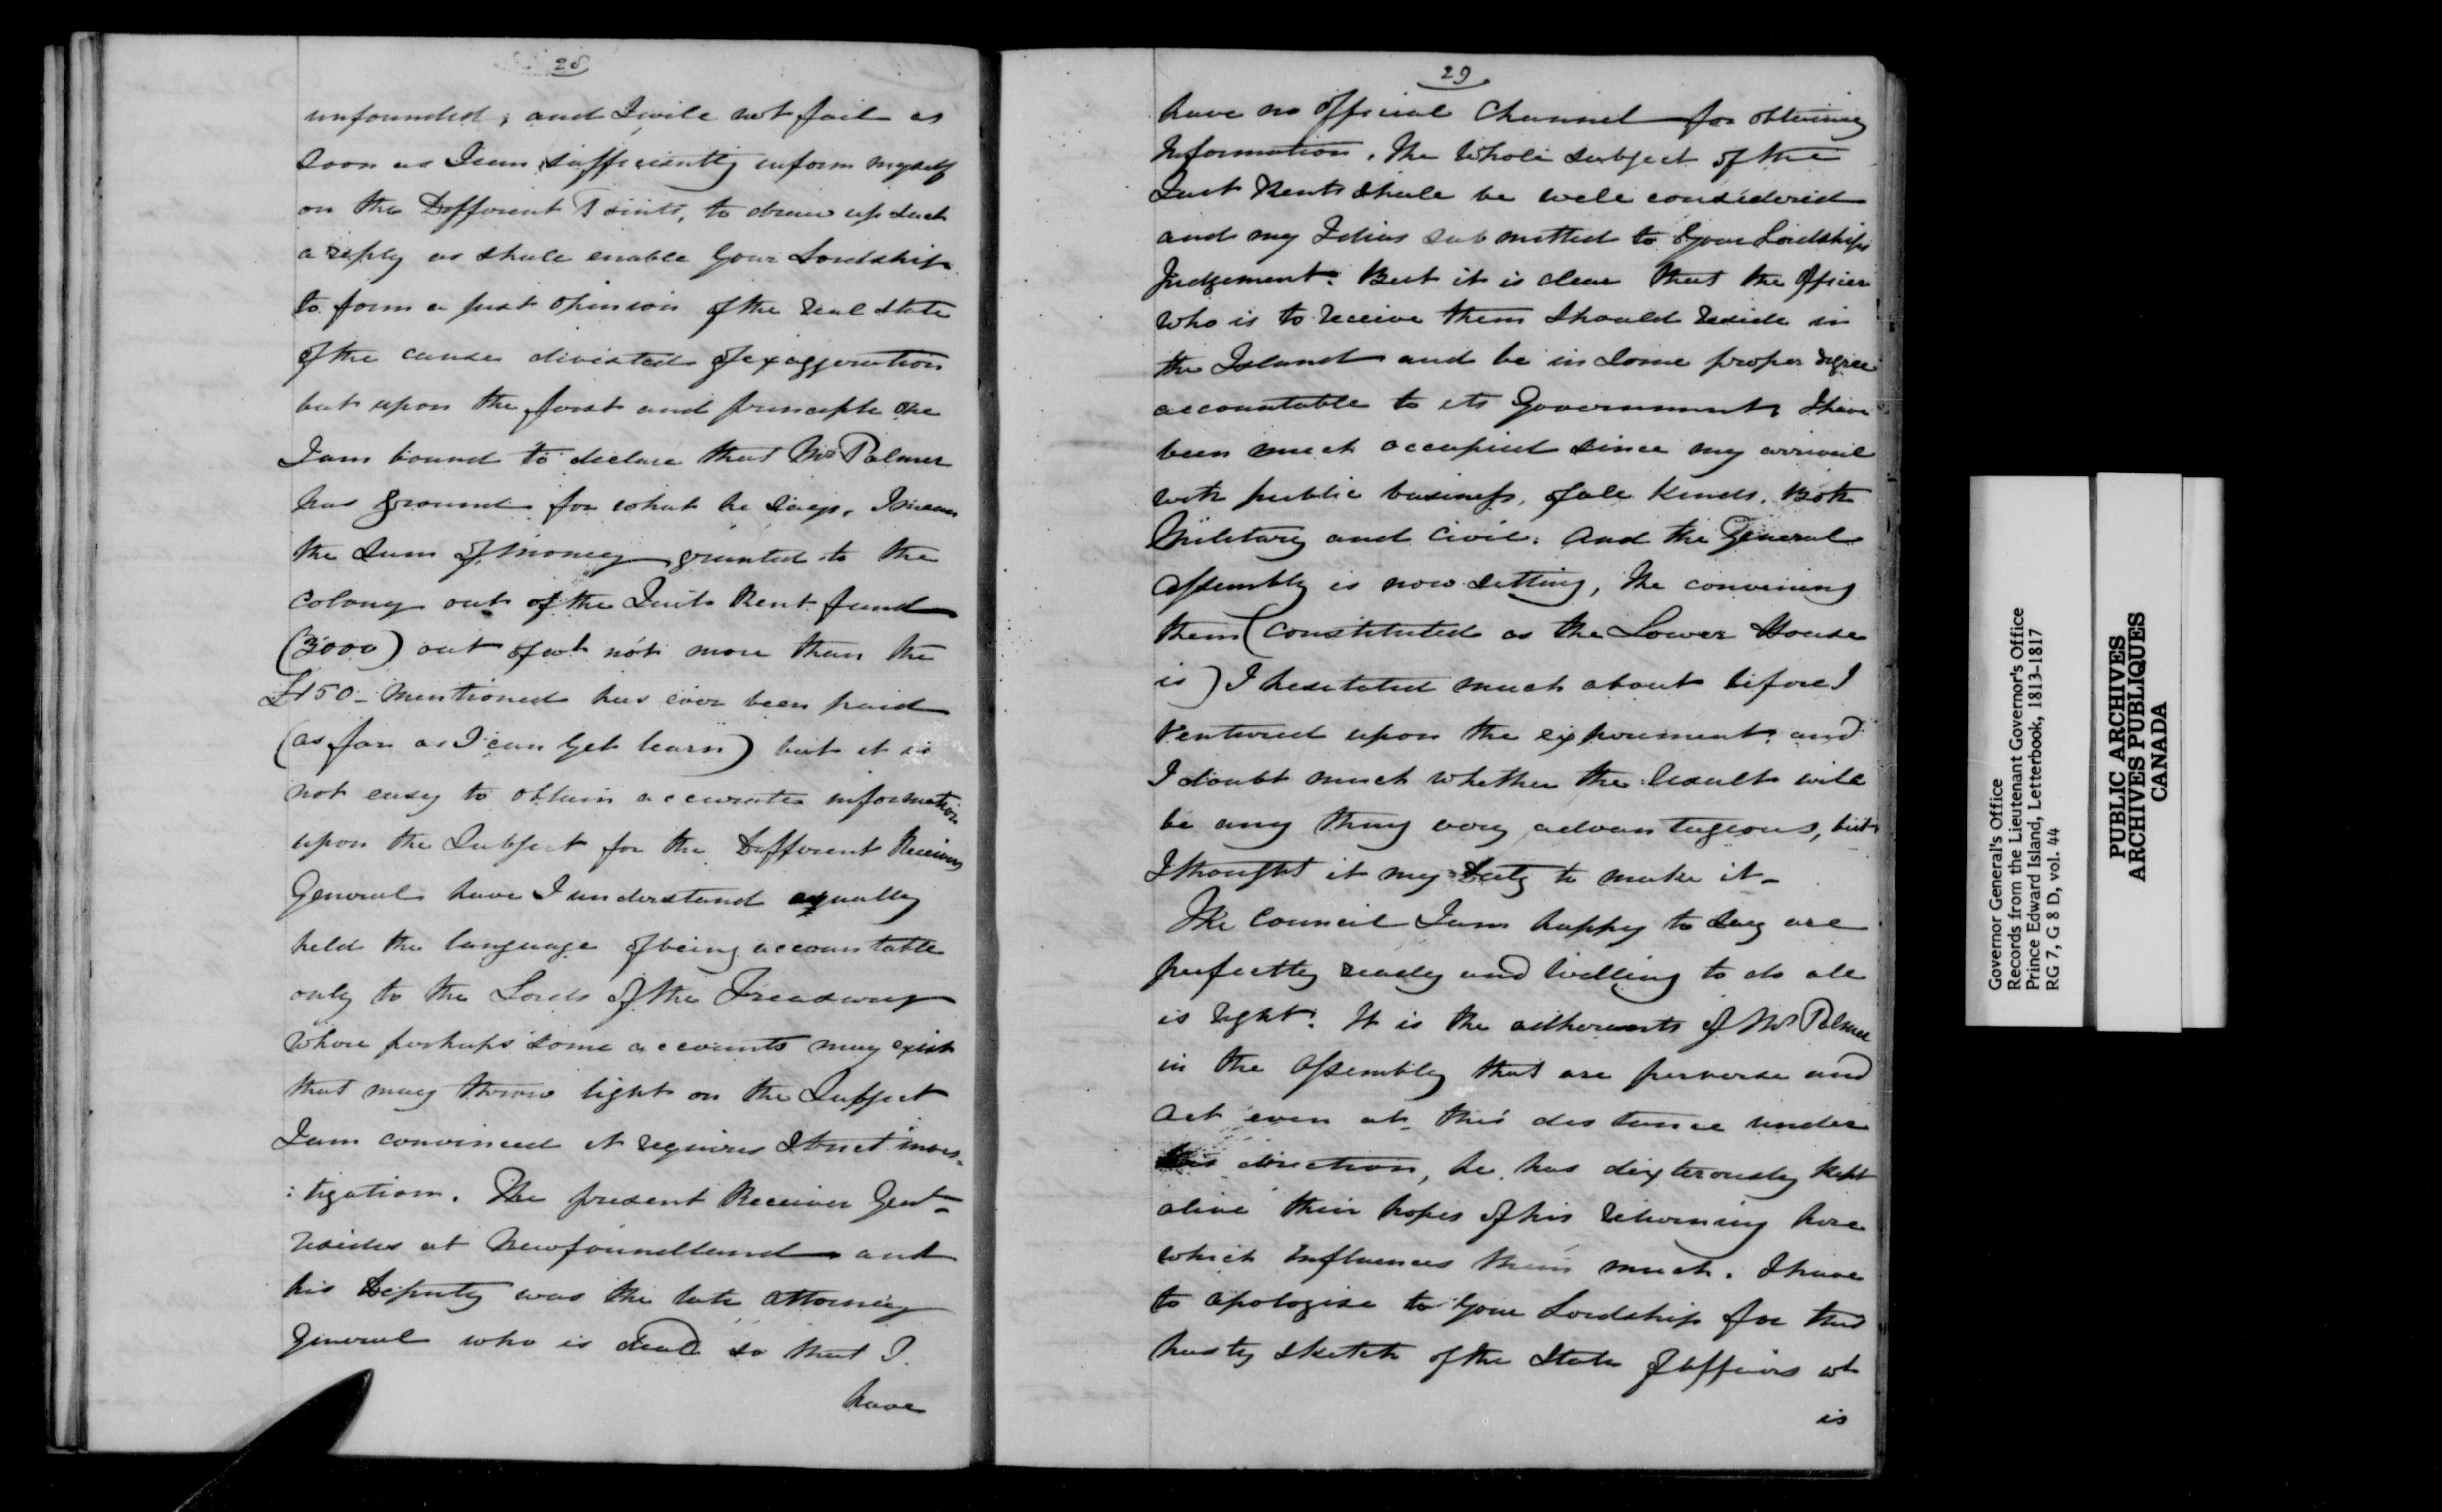 28
unfounded; and I will not fail as
soon as I can sufficiently inform myself
on the Different Points, to draw up such
a reply as shall enable Your Lordship
to form a just opinion of the real State
of the cause divested of exaggeration
but upon the first and principle one
I am bound to declare that Mr Palmer
has ground for what he says, I mean
the Sum of Money granted to the
Colony out of the Quit Rent fund
(3000) out of wh not more than the
£150 - Mentioned has ever been paid
(as far as I can yet learn) but it is
not easy to obtain accurate information
upon the Subject for the Different Receivers
General have I understand equally
held the language of being accountable
only to the Lords of the Treasury
Where perhaps some accounts may exist
that may throw light on the Subject
I am convinced it requires Strict inves-
:tigation. The present Receiver Genl-
resides at Newfoundland and
his Deputy was the late Attorney
General who is dead so that I
have
29
have no official Channel for obtaining
Information. The Whole subject of the
Quit Rents shall be well considered
and my Ideas submitted to Your Lordships
Judgement. But it is clear that the Officer
Who is to receive them Should reside in
the Island and be in Some proper degree
accountable to its Government, I have
been much occupied since my arrival
with public business, of all kinds, Both
Military and Civil. And the General
Assembly is now Sitting, The convening
them (Constituted as the Lower House
is) I hesitated much about before I
Ventured upon the experiment, and
I doubt much whether the Result will
be any thing very advantageous, but
I thought it my Duty to make it -
The Council I am happy to Say are
perfectly ready and Willing to do all
is right. It is the adherents of Mr Palmer
in the Assembly that are perverse and
act even at this distance under
his direction, he has dexterously kept
alive their hopes of his returning here
which Influences them much. I have
to apologise to Your Lordship for this
hasty sketch of the State of Affairs wh
is
Governor General's Office
Records from the Lieutenant Governor's Office
Prince Edward Island, Letterbook, 1813-1817
RG 7, G 8 D, vol. 44
PUBLIC ARCHIVES
ARCHIVES PUBLIQUES
CANADA